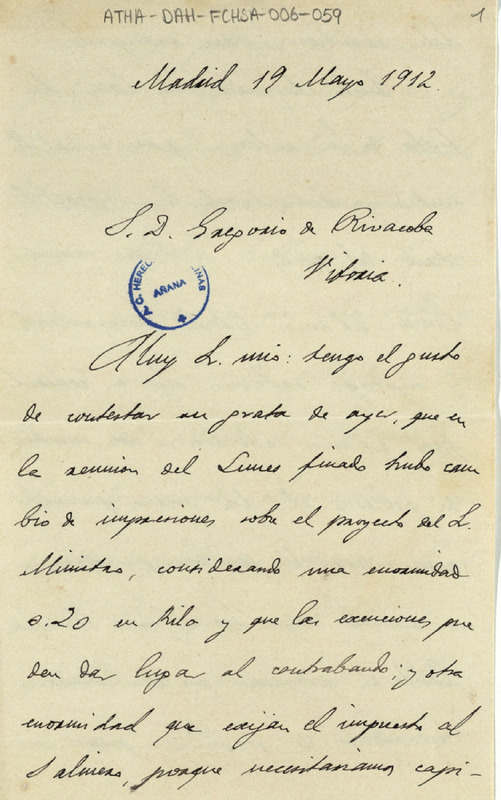 ATHA-DAH-FCHSA-006-059
1
Madrid 19 Mayo 1912.
S. D. Gregorio de Rivacoba
Vitoria.
AÑANA
Muy Sr. mio: tengo el gusto
de contestar su grata de ayer, que en
la reunion del Lunes pasado hubo cam
bio de impresiones sobre el proyecto del Sr.
Ministro, considerando una enormidad
0.20 en kilo y que las exenciones pue
den dar lugar al contrabando; y otra
enormidad que exijan el impuesto al
Salinero, porque necesitariamos capi-